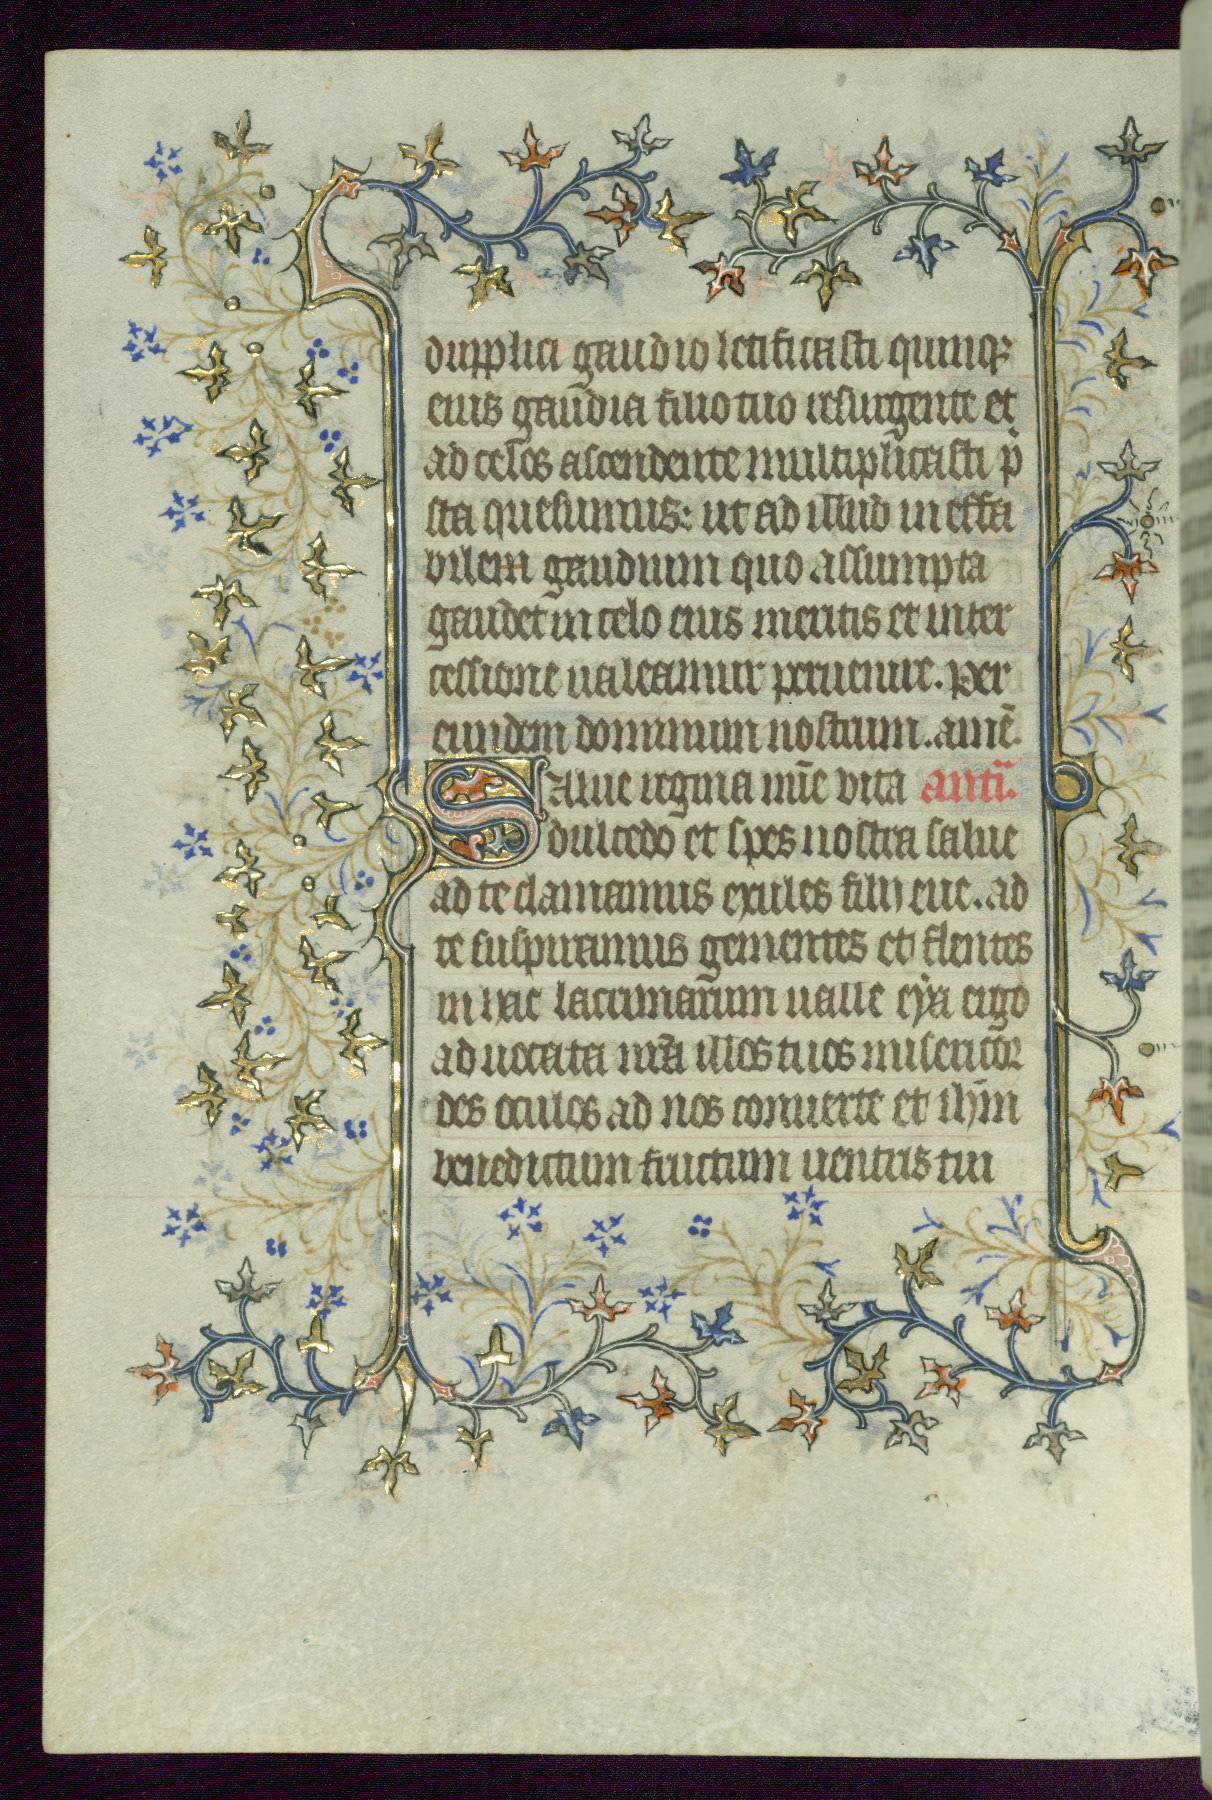 dupplici gaudio letificasti quinqꝫ
eius gaudia filio tuo resurgente et
ad celos ascendente multiplicasti p̄
sta quesumus: ut ad illud ineffa
bilem gaudium quo assumpta
gaudet in celo eius meritis et inter
cessione ualeamur peruenire. per
eundem dominum nostrum. amē.
Salue regina mīe vita antī.
dulcedo et spes nostra salue
ad te clamamus exules filij eue. ad
te suspiramus gementes et flentes
in hac lacrimarum ualle eya ergo
aduocata nr̄a illos tuos misericor
des oculos ad nos conuerte et ihm̄
benedictum fructum uentris tui